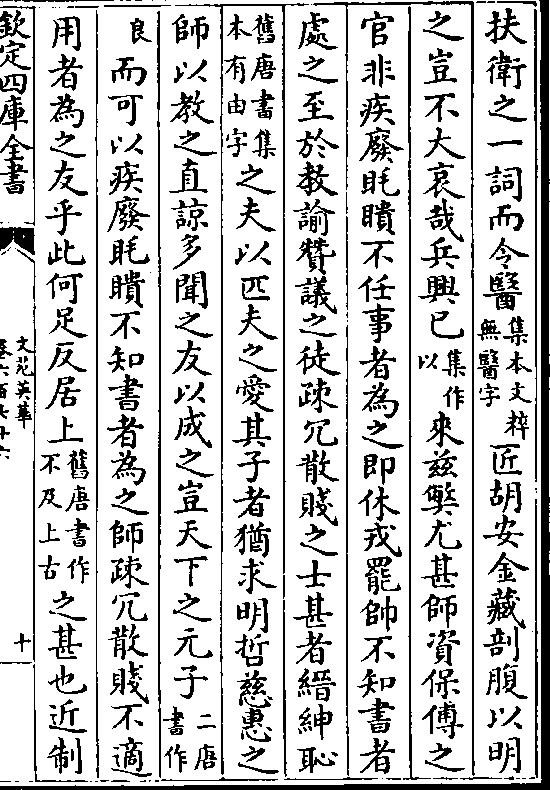 扶衛之一詞而令醫集本文粹無醫字匠胡安金藏剖腹以明
之豈不大哀哉兵興已集作以來兹弊尤甚師資保傅之
官非疾廢眊瞶不任事者為之即休戎罷帥不知書者
處之至於敎諭贊議之徒疎冗散賤之士甚者縉紳恥
舊唐書集本有由字之夫以匹夫之愛其子者猶求明哲慈惠之
師以教之直諒多聞之友以成之豈天下之元子二唐書作
良而可以疾廢眊瞶不知書者為之師疎冗散賤不適
用者為之友乎此何足反居上舊唐書作不及上古之甚也近制
欽定四庫全書
文苑英華
十